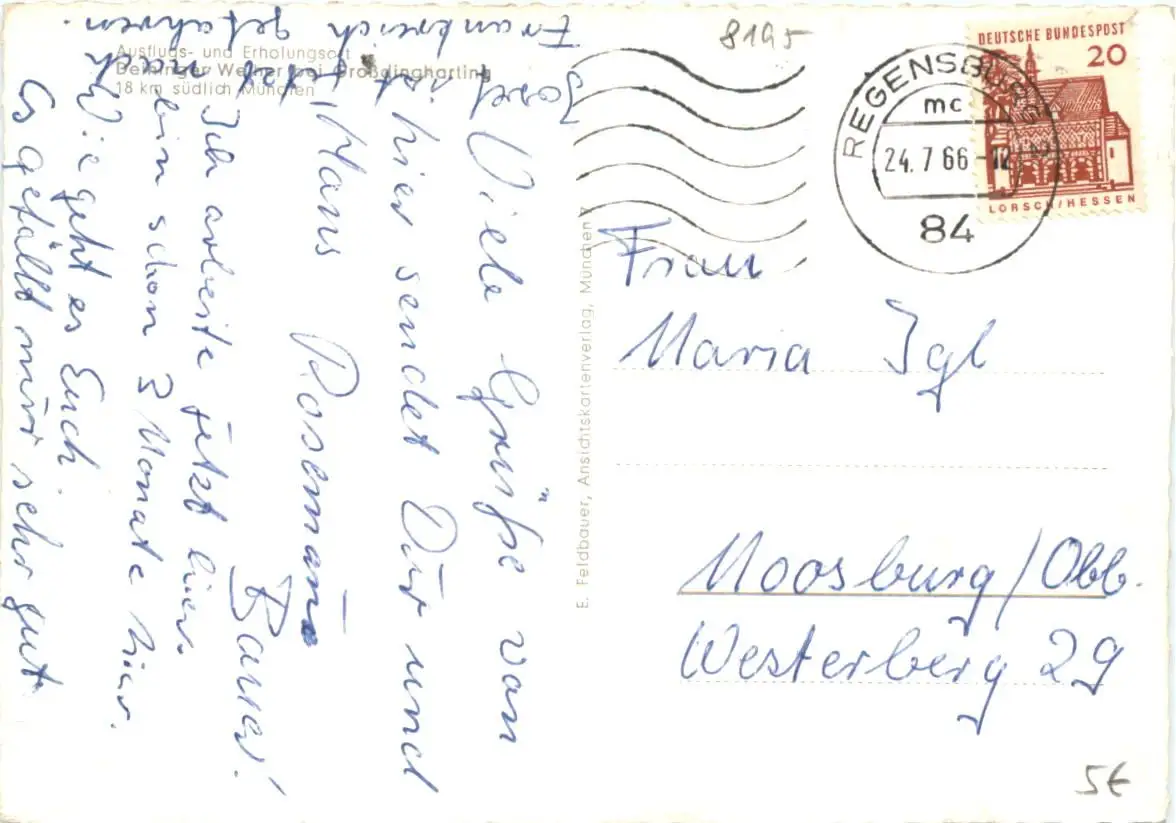 Ausflugs- und Erholungsort
Deininger Weiher bei Großdingharting
18 km südlich München
Viele Grüße von
hier sendet Dir und
Hans Rosemarie
Bauer!
Ich arbeite jetzt hier.
bin schon 3 Monate hier.
Wie geht es Euch.
Es gefällt mir sehr gut
Josef ist
nach
Frankreich gefahren.
E. Feldbauer, Ansichtskartenverlag, München 7
8195
DEUTSCHE BUNDESPOST
20
LORSCH/HESSEN
REGENSBURG
mc
24.7.66-12
84
Frau
Maria Igl
Moosburg/Obb.
Westerberg 29
5€